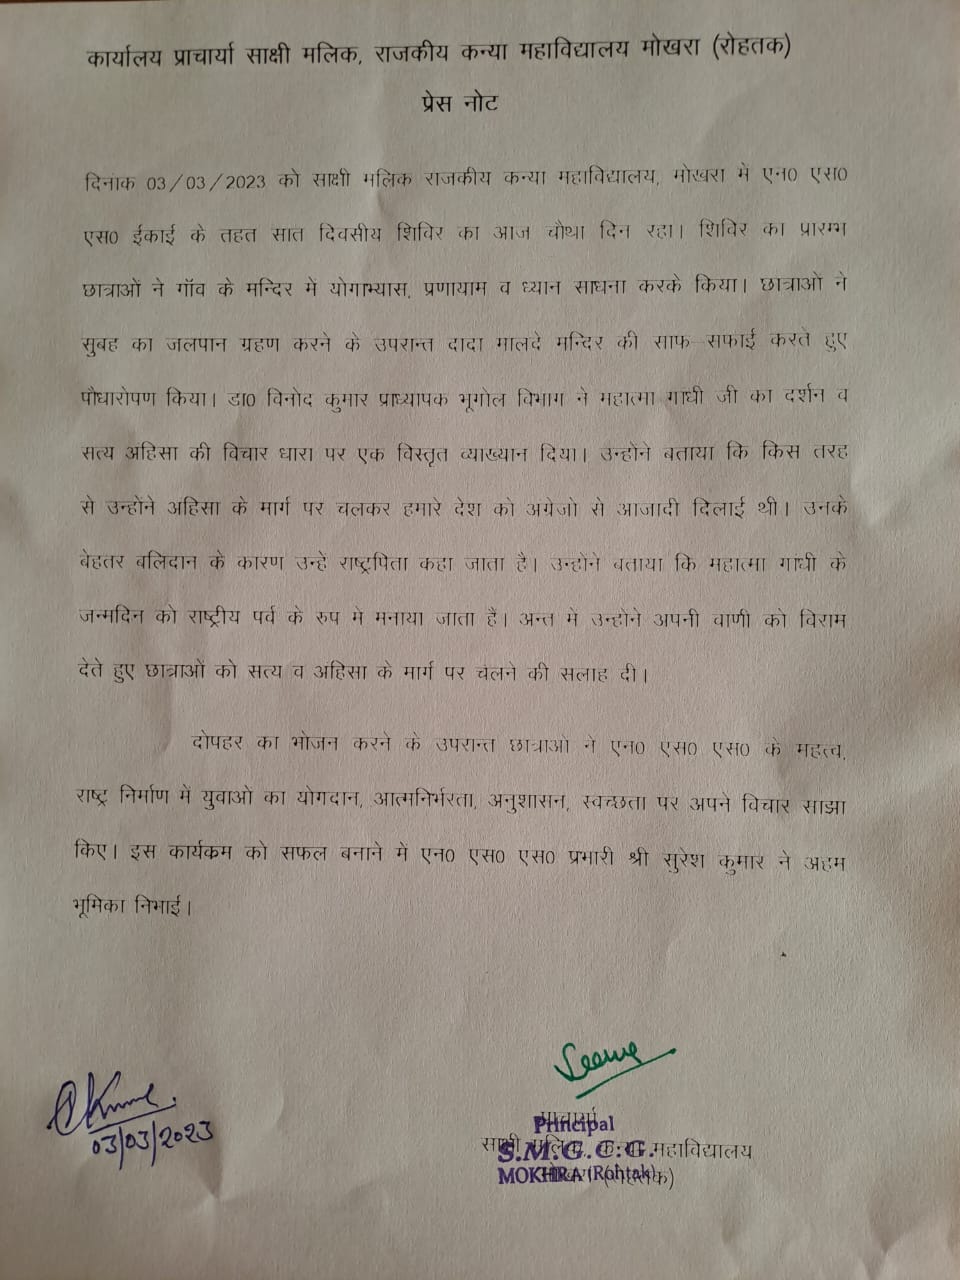 कार्यालय प्राचार्या साक्षी मलिक, राजकीय कन्या महाविद्यालय मोखरा (रोहतक)
प्रेस नोट
दिनाक 03/03/2023 को साक्षी मलिक राजकीय कन्या महाविद्यालय, मोखरा मे एन0 एस0
एस0 ईकाई के तहत सात दिवसीय शिविर का आज चौथा दिन रहा। शिविर का प्रारम्भ
छात्राओं ने गॉव के मन्दिर में योगाभ्यास, प्रणायाम व ध्यान साधना करके किया। छात्राओ ने
सुबह का जलपान ग्रहण करने के उपरान्त दादा मालदे मन्दिर की साफ-सफाई करते हुए
पौधारोपण किया। डा0 विनोद कुमार प्राध्यापक भूगोल विभाग ने महात्मा गाधी जी का दर्शन व
सत्य अहिसा की विचार धारा पर एक विस्तृत व्याख्यान दिया। उन्होने बताया कि किस तरह
से उन्होंने अहिसा के मार्ग पर चलकर हमारे देश को अग्रेजो से आजादी दिलाई थी। उनके
बेहतर बलिदान के कारण उन्हे राष्ट्रपिता कहा जाता है। उन्होने बताया कि महात्मा गांधी के
जन्मदिन को राष्ट्रीय पर्व के रुप मे मनाया जाता है। अन्त मे उन्होने अपनी वाणी को विराम
देते हुए छात्राओं को सत्य व अहिसा के मार्ग पर चलने की सलाह दी।
दोपहर का भोजन करने के उपरान्त छात्राओ ने एन0 एस0 एस0 के महत्व,
राष्ट्र निर्माण में युवाओ का योगदान, आत्मनिर्भरता, अनुशासन, स्वच्छता पर अपने विचार साझा
किए। इस कार्यकम को सफल बनाने मे एन0 एस0 एस0 प्रभारी श्री सुरेश कुमार ने अहम
भूमिका निभाई।
03/03/2023
प्राचार्या
Principal
S.M.G.C.G.
कन्या महाविद्यालय
MOKHRA (Rohtak)